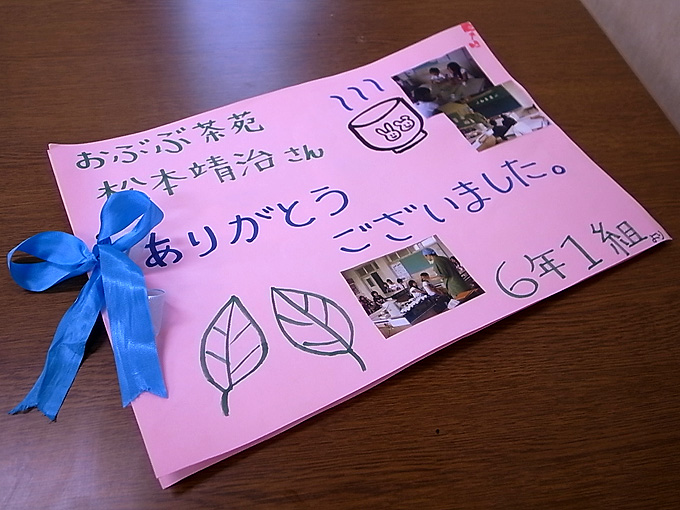 おぶぶ茶苑
松本靖治さん
ありがとう
ございました。
6年1組